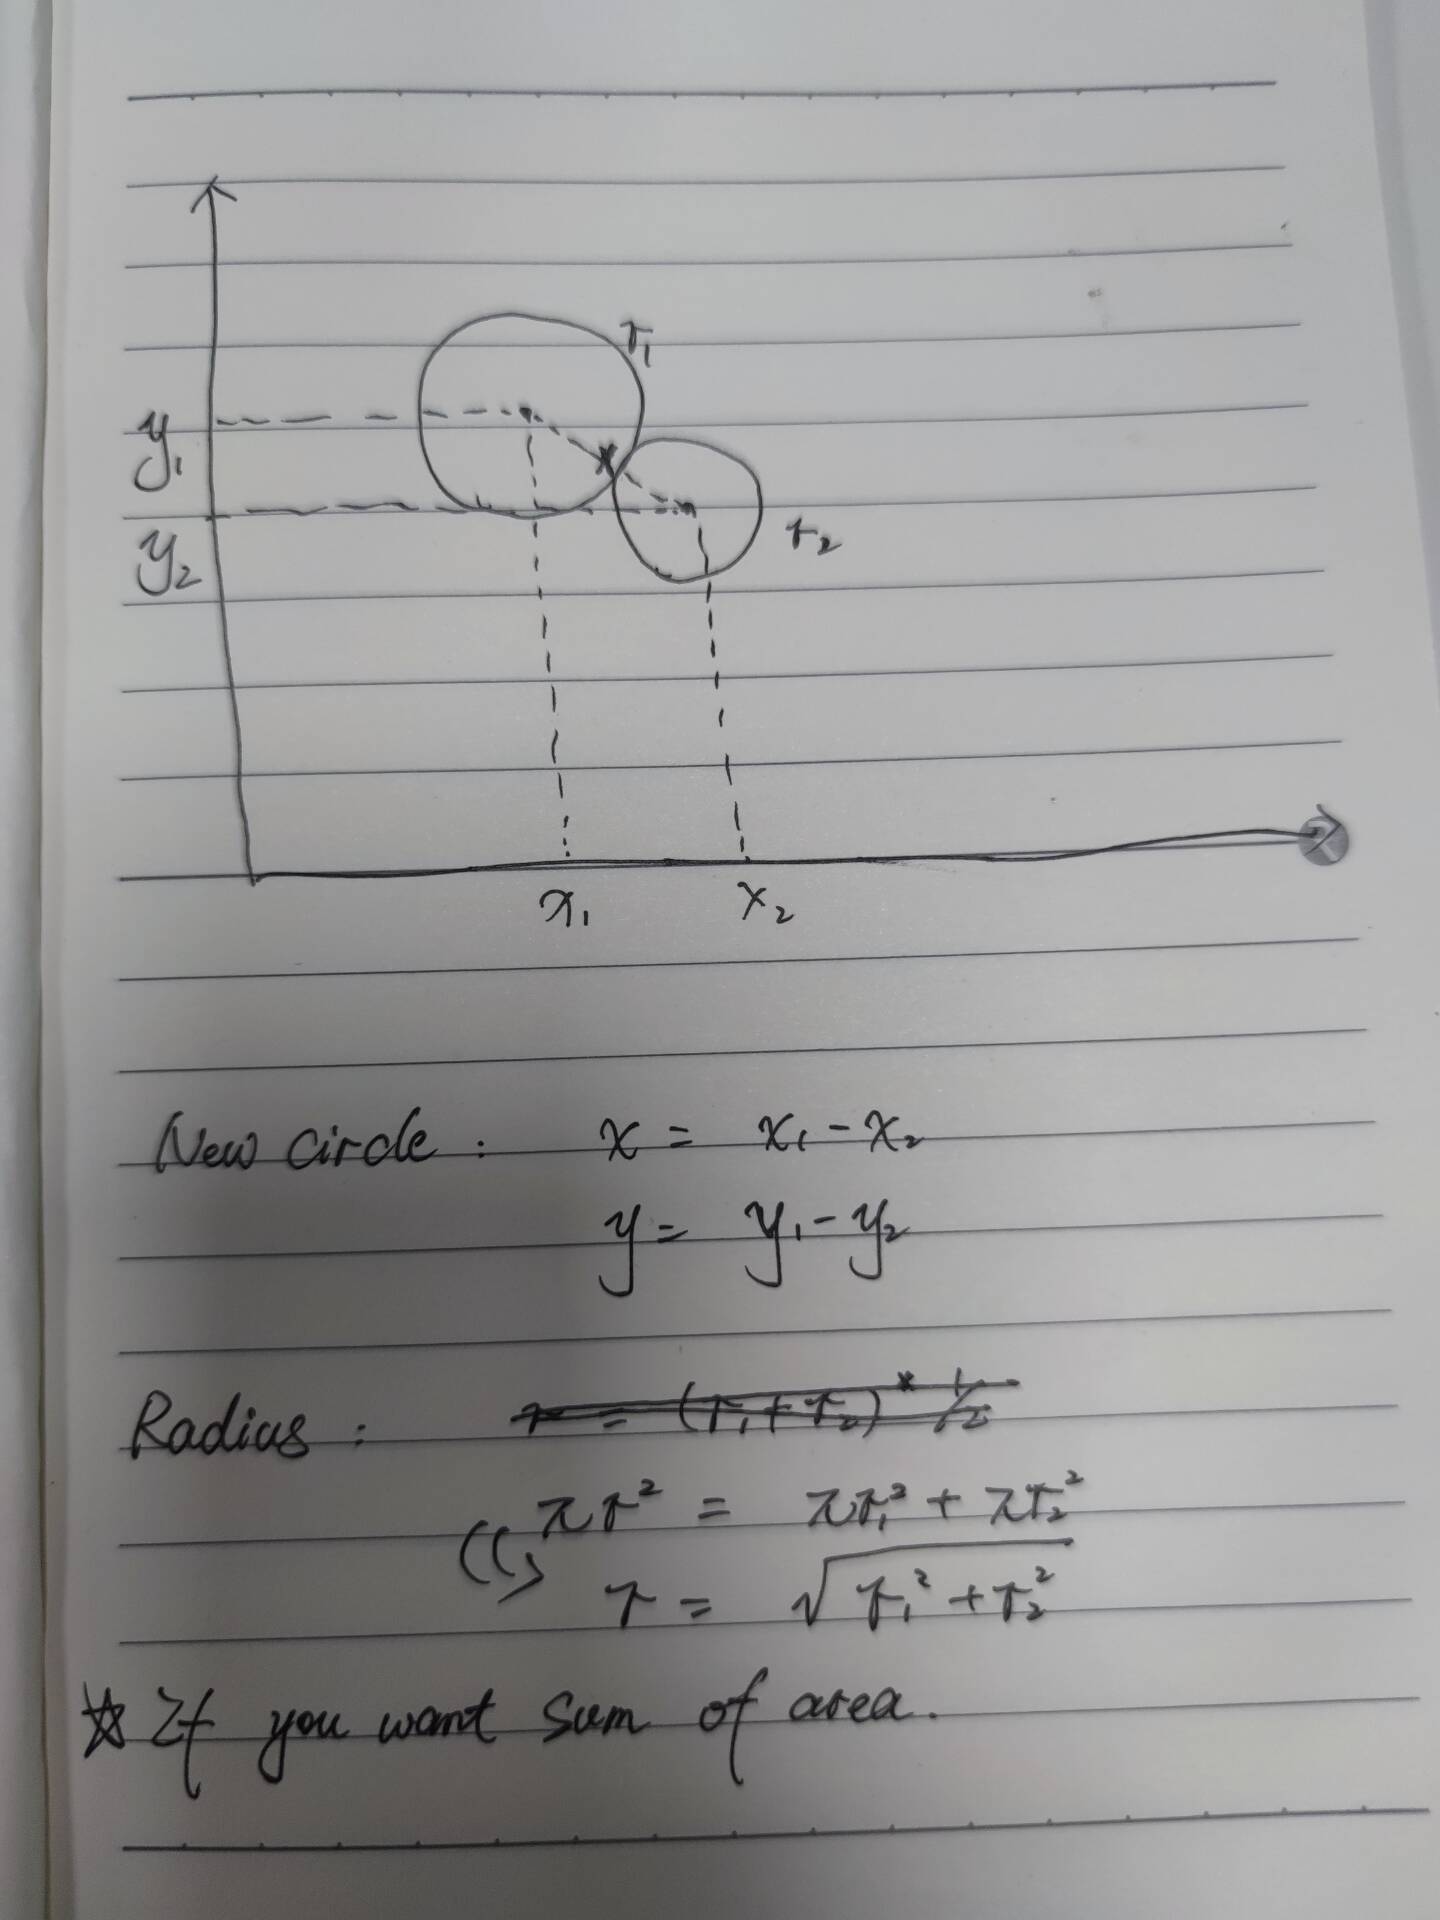 r₁
y₁
y₂
r₂
x₁ x₂
New circle: x = x₁ - x₂
y = y₁ - y₂
Radius: r = (r₁ + r₂) * 1/2
πr² = πr₁² + πr₂²
r = √r₁² + r₂²
☆ If you want sum of area.